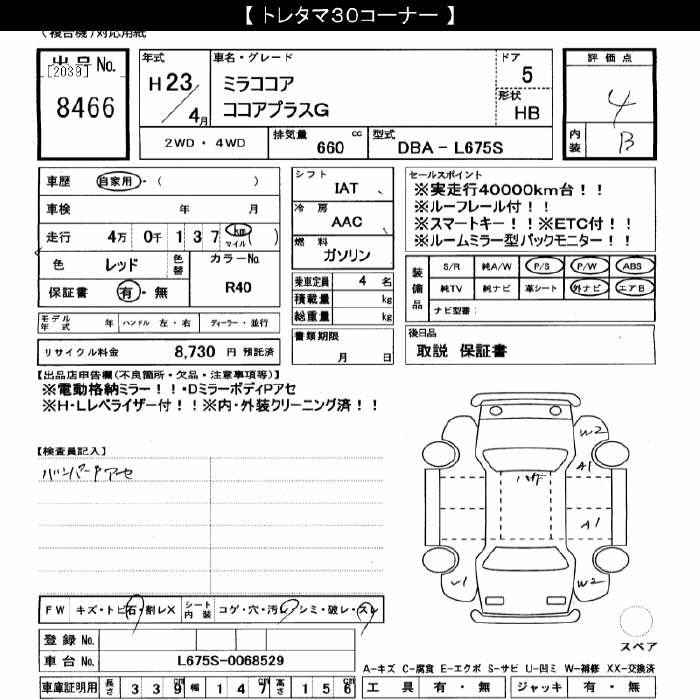 【 トレタマ30コーナー 】
(複合機)対応用紙
出品No.
[2039]
8466
年式
H 23 / 4月
車名・グレード
ミラココア
ココアプラスG
ドア
5
形状
HB
評価点
4
内装
B
2WD・4WD
排気量 660 cc
型式 DBA - L675S
車歴 自家用・( )
車検 年 月
走行 4万 0千 1 3 7 km マイル ( )
色 レッド 色替
カラーNo.
R40
保証書 有・無
モデル年式 年 ハンドル 左・右 ディーラー・並行
リサイクル料金 8,730 円 預託済
シフト
IAT
冷房
AAC
燃料
ガソリン
乗車定員 4 名
積載量 kg
総重量 kg
書類期限
月 日
セールスポイント
※実走行40000km台!!
※ルーフレール付!!
※スマートキー!!※ETC付!!
※ルームミラー型バックモニター!!
装備品
S/R 純A/W P/S P/W ABS
純TV 純ナビ 革シート 外ナビ エアB
ナビ型番:
後日品
取説 保証書
【出品店申告欄(不良箇所・欠品・注意事項等)】
※電動格納ミラー!!・DミラーボディPアセ
※H・Lレベライザー付!!※内・外装クリーニング済!!
【検査員記入】
バンパーPアセ
W2
A1
A1
W2
FW キズ・トビ石・割レX
シート内装 コゲ・穴・汚レ・シミ・破レ・スレ
登録No.
車台No. L675S-0068529
車庫証明用 長さ 3 3 9 cm 幅 1 4 7 cm 高さ 1 5 6 cm
スペア
A-キズ C-腐食 E-エクボ S-サビ U-凹ミ W-補修 XX-交換済
工具 有・無 ジャッキ 有・無